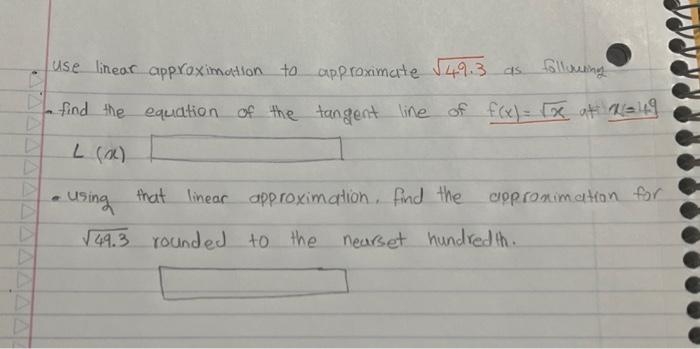 use linear approximation to approximate √49.3 as following
- find the equation of the tangent line of f(x) = √x at x=49
L (x)
• using that linear approximation, find the approximation for
√49.3 rounded to the nearset hundredth.